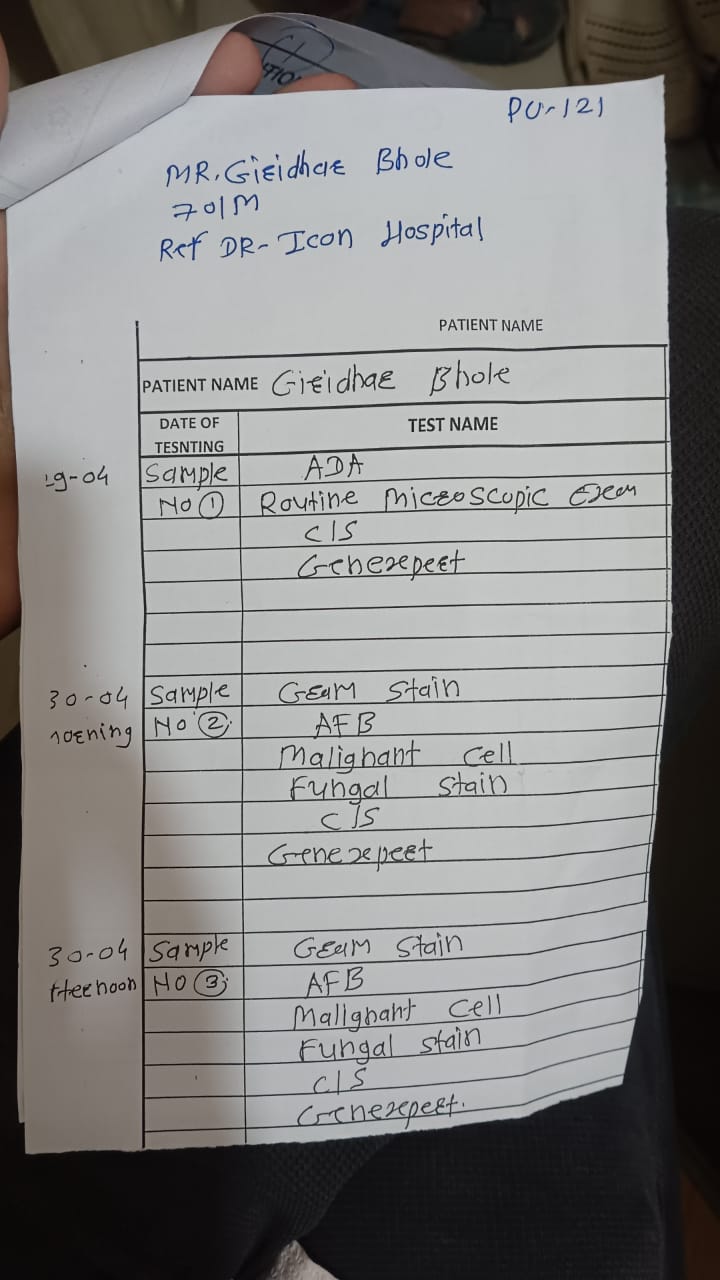 PU-121
MR. Giridhar Bhole
70/M
Ref DR- Icon Hospital
PATIENT NAME
PATIENT NAME Giridhar Bhole
DATE OF TESNTING TEST NAME
29-04 Sample ADA
No 1 Routine Microscopic Exam
C/S
Genexpert
30-04 Sample Gram Stain
morning No 2 AFB
Malignant Cell
Fungal Stain
C/S
Genexpert
30-04 Sample Gram Stain
fternoon No 3 AFB
Malignant Cell
Fungal stain
C/S
Genexpert.